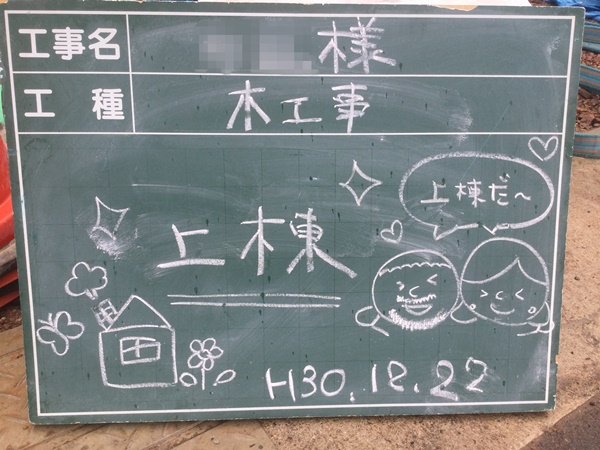 工事名 様
工種 木工事
上棟だ～
上棟
H30.12.22